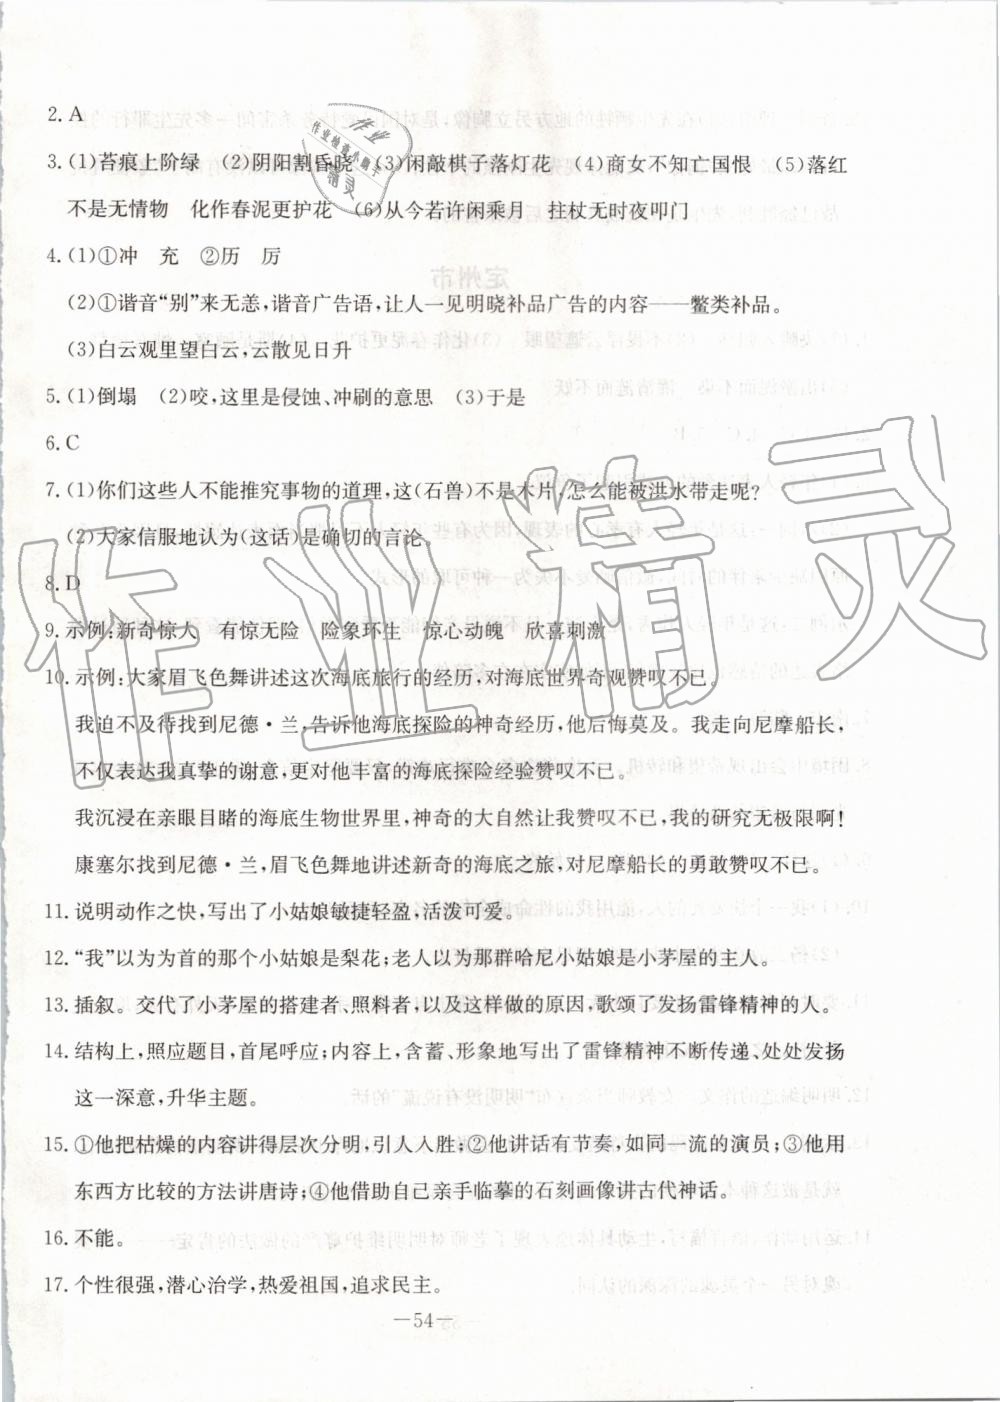 2. A
3. (1)苔痕上阶绿 (2)阴阳割昏晓 (3)闲敲棋子落灯花 (4)商女不知亡国恨 (5)落红
不是无情物 化作春泥更护花 (6)从今若许闲乘月 拄杖无时夜叩门
4. (1)①冲 充 ②历 厉
(2)①谐音“别”来无恙,谐音广告语,让人一见明晓补品广告的内容——鳖类补品。
(3)白云观里望白云,云散见日升
5. (1)倒塌 (2)咬,这里是侵蚀、冲刷的意思 (3)于是
6. C
7. (1)你们这些人不能推究事物的道理,这(石兽)不是木片,怎么能被洪水带走呢?
(2)大家信服地认为(这话)是确切的言论。
8. D
9. 示例:新奇惊人 有惊无险 险象环生 惊心动魄 欣喜刺激
10. 示例:大家眉飞色舞讲述这次海底旅行的经历,对海底世界奇观赞叹不已。
我迫不及待找到尼德·兰,告诉他海底探险的神奇经历,他后悔莫及。我走向尼摩船长,
不仅表达我真挚的谢意,更对他丰富的海底探险经验赞叹不已。
我沉浸在亲眼目睹的海底生物世界里,神奇的大自然让我赞叹不已,我的研究无极限啊!
康塞尔找到尼德·兰,眉飞色舞地讲述新奇的海底之旅,对尼摩船长的勇敢赞叹不已。
11. 说明动作之快,写出了小姑娘敏捷轻盈,活泼可爱。
12. “我”以为为首的那个小姑娘是梨花;老人以为那群哈尼小姑娘是小茅屋的主人。
13. 插叙。交代了小茅屋的搭建者、照料者,以及这样做的原因,歌颂了发扬雷锋精神的人。
14. 结构上,照应题目,首尾呼应;内容上,含蓄、形象地写出了雷锋精神不断传递、处处发扬
这一深意,升华主题。
15. ①他把枯燥的内容讲得层次分明,引人入胜;②他讲话有节奏,如同一流的演员;③他用
东西方比较的方法讲唐诗;④他借助自己亲手临摹的石刻画像讲古代神话。
16. 不能。
17. 个性很强,潜心治学,热爱祖国,追求民主。
—54—
作业精灵